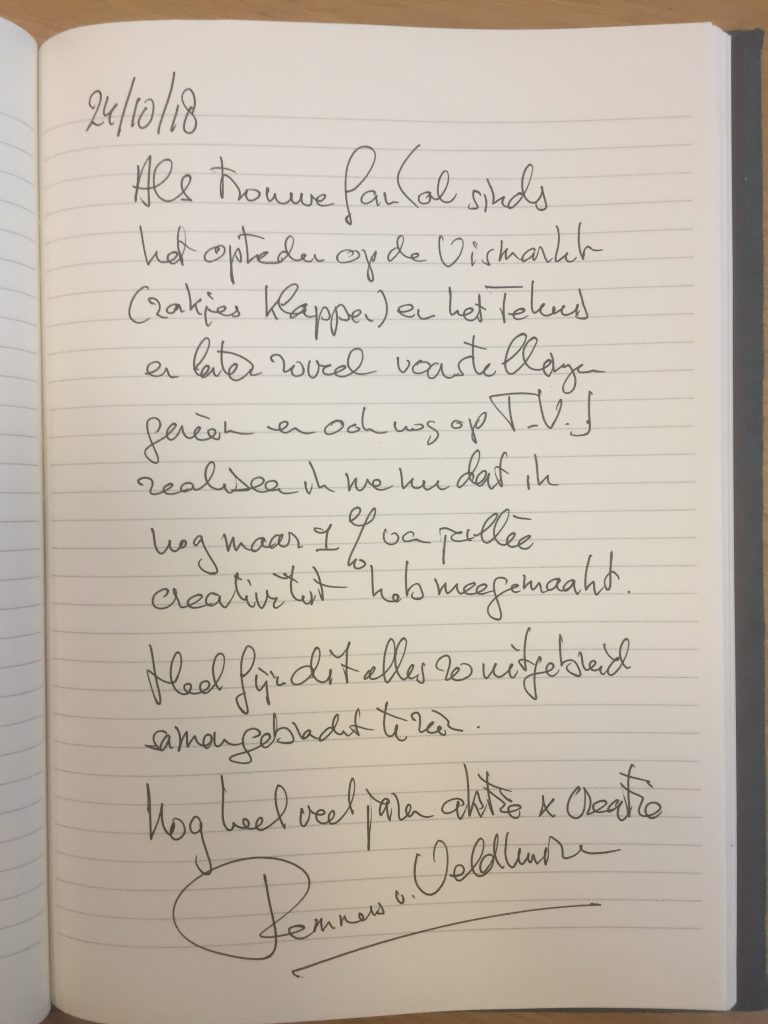 24/10/18
Als trouwe fan (al sinds
het optreden op de Vismarkt
(zakjes klappen) en het Tekens
en later zoveel voorstellingen
gezien en ook nog op T.V.)
realiseer ik me nu dat ik
nog maar 1% van jullie
creativiteit heb meegemaakt.
Heel fijn dit alles zo uitgebreid
samengebracht te zien.
Nog heel veel jaren aktie x creatie
v. Veldhuizen